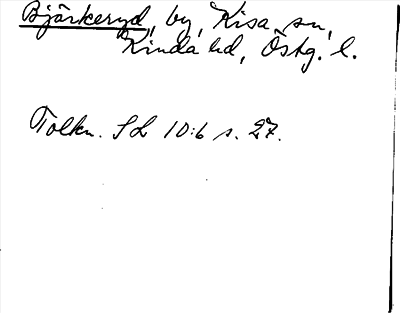 Bjärkeryd, by, Kisa sn,
Kinda hd, Östg. l.
Tolkn. SL 10:6 s. 27.